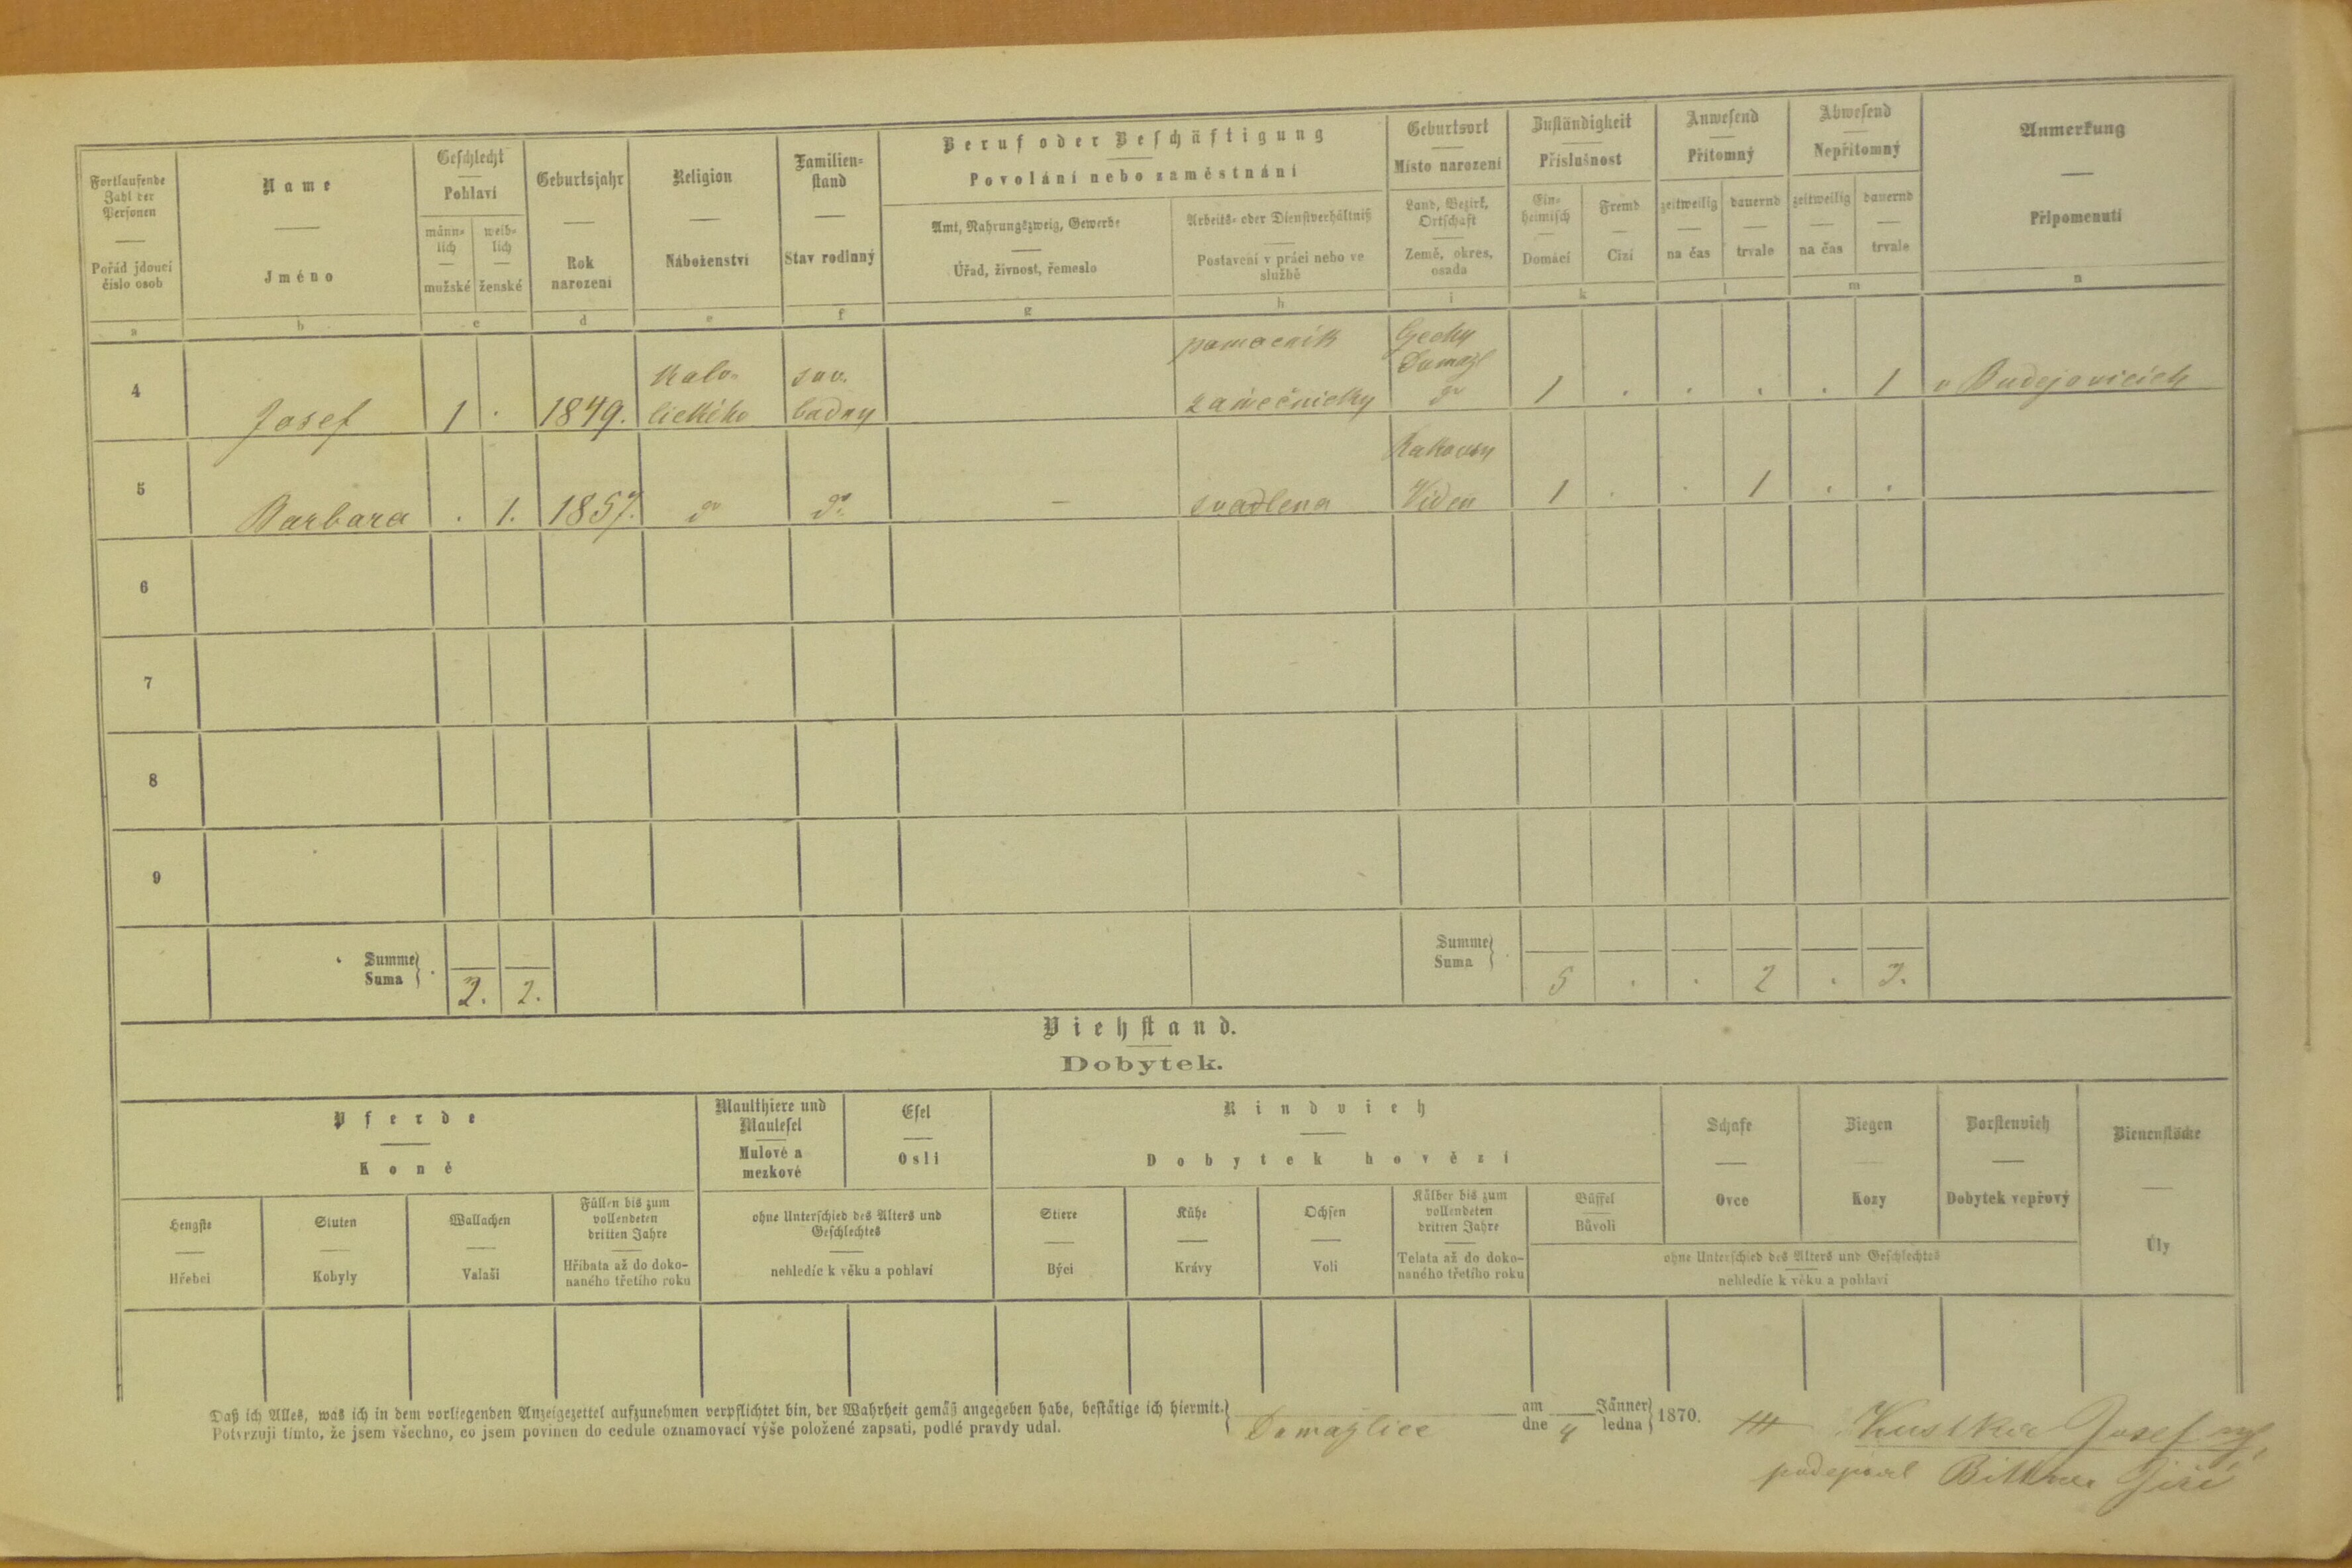 Fortlaufende Zahl der Personen
Pořád jdoucí číslo osob
a
Name
Jméno
b
Geschlecht
Pohlaví
männ-lich
mužské
weib-lich
ženské
c
Geburtsjahr
Rok narození
d
Religion
Náboženství
e
Familien-stand
Stav rodinný
f
Beruf oder Beschäftigung
Povolání nebo zaměstnání
Amt, Nahrungszweig, Gewerbe
Úřad, živnost, řemeslo
g
Arbeits- oder Dienstverhältniß
Postavení v práci nebo ve službě
h
Geburtsort
Místo narození
Land, Bezirk, Ortschaft
Země, okres, osada
i
Zuständigkeit
Příslušnost
Ein-heimisch
Domácí
Fremd
Cizí
k
Anwesend
Přítomný
zeitweilig
na čas
dauernd
trvale
l
Abwesend
Nepřítomný
zeitweilig
na čas
dauernd
trvale
m
Anmerkung
Připomenutí
n
4
Josef
1
1849.
lického
bodny
pomocnik
zámečnicky
Domažl
1
1
v Budejovicích
5
Barbara
1.
1857.
svadlena
Videň
1
1
6
7
8
9
Summe
Suma
2. 2.
Summe
Suma
5 2
Viehstand.
Dobytek.
Pferde
Koně
Hengste
Hřebci
Stuten
Kobyly
Wallachen
Valaši
Füllen bis zum vollendeten dritten Jahre
Hříbata až do doko-naného třetího roku
Maulthiere und Maulesel
Mulové a mezkové
Esel
Osli
ohne Unterschied des Alters und Geschlechtes
nehledíc k věku a pohlaví
Rindvieh
Dobytek hovězí
Stiere
Býci
Kühe
Krávy
Ochsen
Voli
Kälber bis zum vollendeten dritten Jahre
Telata až do doko-naného třetího roku
Büffel
Bůvoli
Schafe
Ovce
Ziegen
Kozy
Borstenvieh
Dobytek vepřový
ohne Unterschied des Alters und Geschlechtes
nehledíc k věku a pohlaví
Bienenstöcke
Úly
Daß ich Alles, was ich in dem vorliegenden Anzeigezettel aufzunehmen verpflichtet bin, der Wahrheit gemäß angegeben habe, bestätige ich hiermit.
Potvrzuji tímto, že jsem všechno, co jsem povinen do cedule oznamovací výše položené zapsati, podlé pravdy udal.
Domazlice
am
dne
4
Jänner
ledna
1870.
Kustka Josef
podepsal Jiří